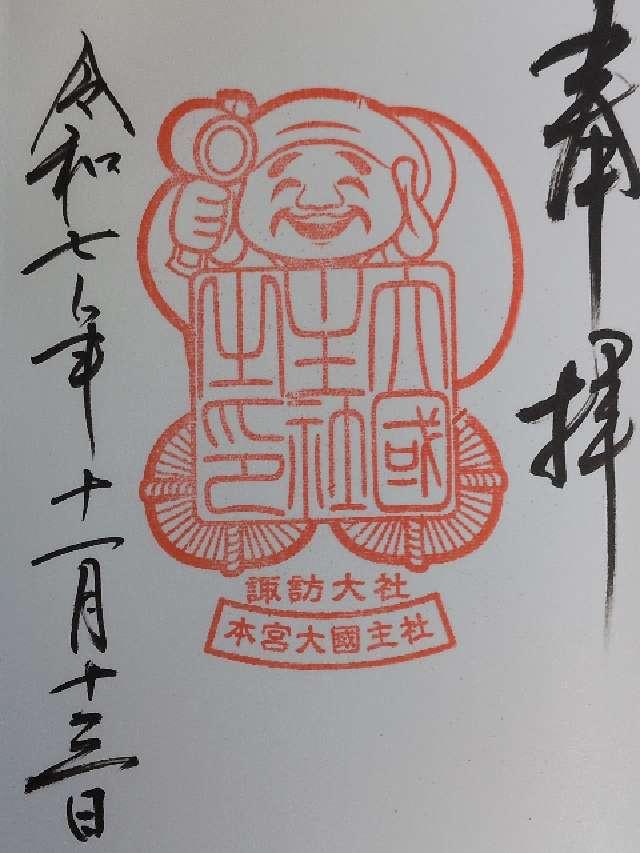 奉拝
大國
主社
之印
諏訪大社
本宮大國主社
令和七年十一月十三日